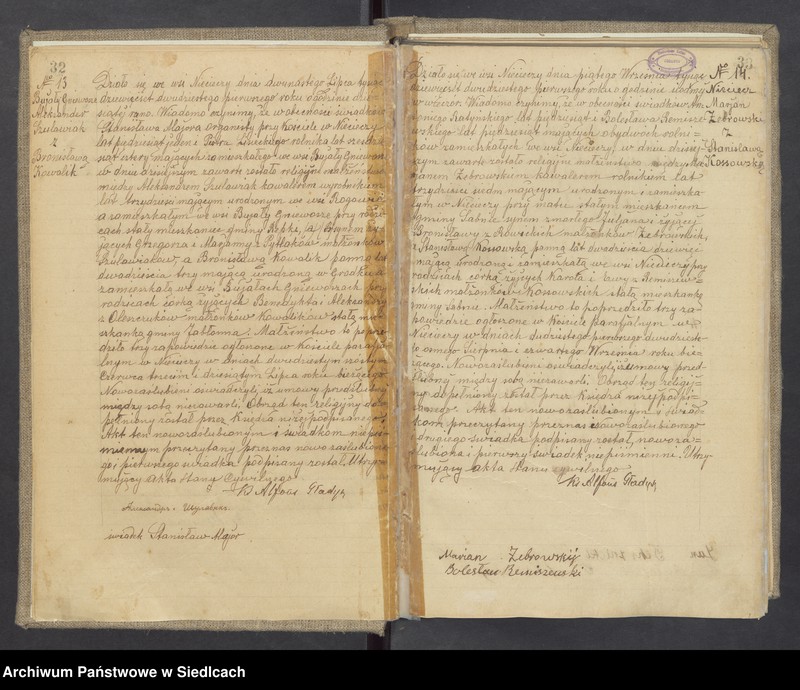 32
№ 13
Bujały Gniewosze
Aleksander
Szulawiak
z
Bronisława
Kowalik
Działo się we wsi Niecieczy dnia dwunastego Lipca tysiąc
dziewięćset dwudziestego pierwszego roku o godzinie
rano. Wiadomo czynimy, że w obecności świadków
Stanisława Majora Organisty przy Kościele w Niecieczy
lat pięćdziesiąt jeden i Piotra rolnika lat
cztery mających zamieszkałego we wsi Bujały Gniewosze
w dniu dzisiejszym zawarte zostało religijne małżeństwo
między Aleksandrem Szulawiak kawalerem wyrobnikiem
lat trzydzieści mającym urodzonym we wsi Rogowiec
a zamieszkałym we wsi Bujały Gniewosze przy rodzi-
cach stały mieszkaniec gminy Repki, synem ży-
jących Grzegorza i Marjanny z Pytlaków małżonków
Szulawiaków, a Bronisławą Kowalik panną lat
dwadzieścia trzy mającą urodzoną w Grodku a
zamieszkałą we wsi Bujałach Gniewoszach przy
rodzicach córką żyjących Benedykta i Aleksandry
z małżonków Kowalików stałą miesz-
kanką gminy Jabłonna. Małżeństwo to poprze-
dziły trzy zapowiedzie ogłoszone w Kościele parafjal-
nym w Niecieczy w dniach dwudziestym szóstym
Czerwca trzecim i dziesiątym Lipca roku bieżącego.
Nowozaślubieni oświadczyli, iż umowy przedślubnej
między sobą nie zawarli. Obrząd ten religijny do-
pełniony został przez Księdza niżej podpisanego.
Akt ten nowozaślubionym i świadkom niepi-
śmiennym przeczytany przez nas nowozaślubione-
go i pierwszego świadka podpisany został. Utrzy-
mujący akta Stanu Cywilnego.
Ks Alfons Gładysz
świadek Stanisław Major
33
№ 14.
Nieciecz
Marjan
Żebrowski
z
Stanisławą
Kossowską
Działo się we wsi Niecieczy dnia piątego Września tysiąc
dziewięćset dwudziestego pierwszego roku o godzinie siódmej
wieczór. Wiadomo czynimy, że w obecności świadków An-
toniego Ratyńskiego lat pięćdziesiąt i Bolesława Remisze-
wskiego lat pięćdziesiąt mających obydwóch rolni-
ków zamieszkałych we wsi Niecieczy, w dniu dzisiej-
szym zawarte zostało religijne małżeństwo między Mar-
janem Żebrowskiem kawalerem rolnikiem lat
trzydzieści siedm mającym urodzonym i zamieszka-
łym w Niecieczy przy matce stałym mieszkańcem
gminy Sabnie synem zmarłego Juljana i żyjącej
Bronisławy z małżonków Żebrowskich,
a Stanisławą Kossowską panną lat dwadzieścia dziewięć
mającą urodzoną i zamieszkałą we wsi Niecieczy przy
rodzicach córką żyjących Karola i Ewy z Remiszew-
skich małżonków Kossowskich stałą mieszkanką
gminy Sabnie. Małżeństwo to poprzedziły trzy za-
powiedzie ogłoszone w Kościele parafjalnym we
Niecieczy w dniach dwudziestego pierwszego dwudzieste-
go ósmego Sierpnia i czwartego Września roku bie-
żącego. Nowozaślubieni oświadczyli iż umowy przed-
ślubnej między sobą nie zawarli. Obrząd ten religij-
ny dopełniony został przez Księdza niżej podpi-
sanego. Akt ten nowozaślubionym i świad-
kom przeczytany przez nas i nowozaślubionego
i drugiego świadka podpisany został, nowoza-
ślubiona i pierwszy świadek niepiśmienni. Utrzy-
mujący akta Stanu cywilnego
Ks Alfons Gładysz
Marian Żebrowskij
Bolesław Remiszewski
Archiwum Państwowe w Siedlcach